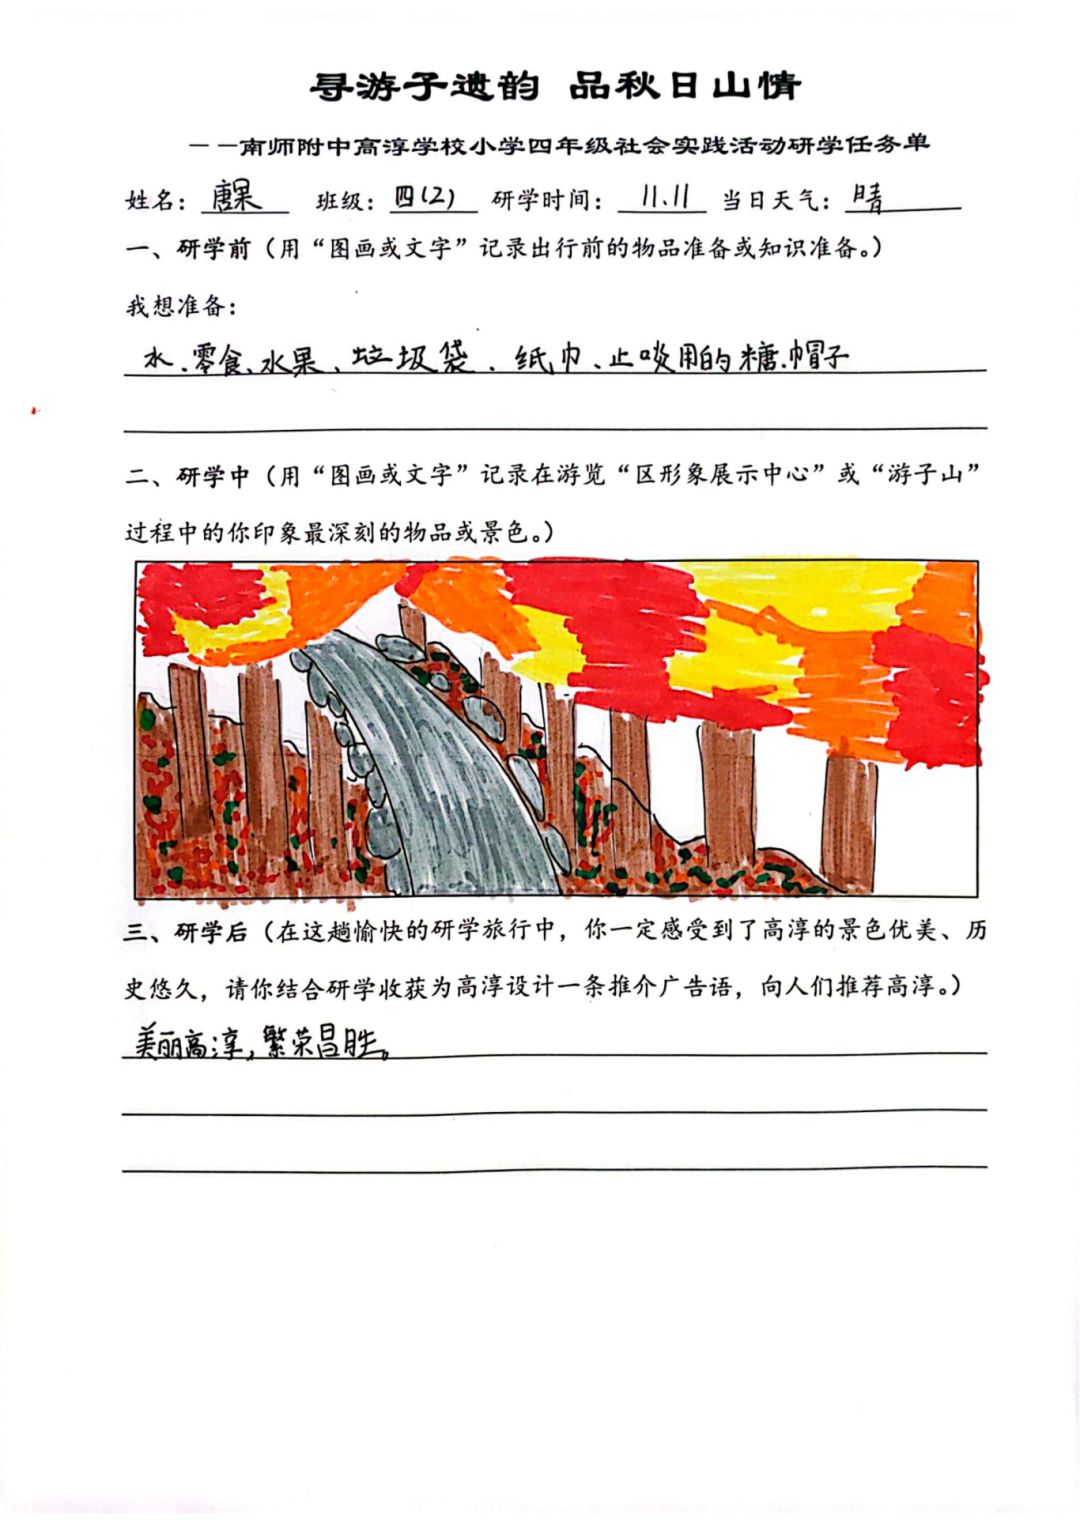 寻游子遗韵 品秋日山情
——南师附中高淳学校小学四年级社会实践活动研学任务单
姓名：唐果 班级：四(2) 研学时间：11.11 当日天气：晴
一、研学前（用“图画或文字”记录出行前的物品准备或知识准备。）
我想准备：
水、零食、水果、垃圾袋、纸巾、止咳用的糖、帽子
二、研学中（用“图画或文字”记录在游览“区形象展示中心”或“游子山”
过程中的你印象最深刻的物品或景色。）
三、研学后（在这趟愉快的研学旅行中，你一定感受到了高淳的景色优美、历
史悠久，请你结合研学收获为高淳设计一条推介广告语，向人们推荐高淳。）
美丽高淳，繁荣昌胜。